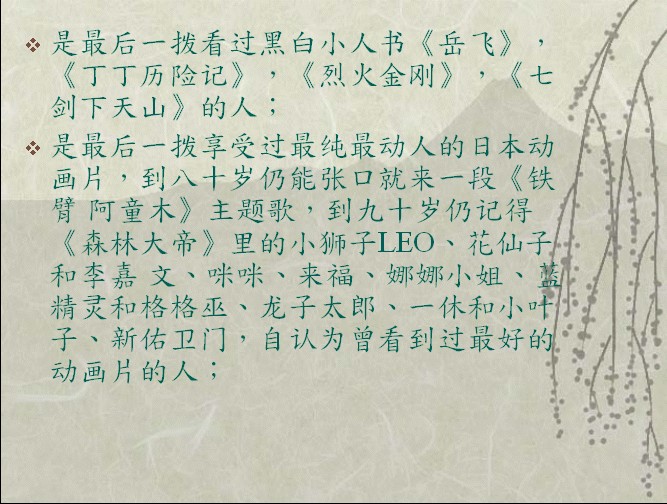 是最后一拨看过黑白小人书《岳飞》，
《丁丁历险记》，《烈火金刚》，《七
剑下天山》的人；
是最后一拨享受过最纯最动人的日本动
画片，到八十岁仍能张口就来一段《铁
臂 阿童木》主题歌，到九十岁仍记得
《森林大帝》里的小狮子LEO、花仙子
和李嘉 文、咪咪、来福、娜娜小姐、蓝
精灵和格格巫、龙子太郎、一休和小叶
子、新佑卫门，自认为曾看到过最好的
动画片的人；